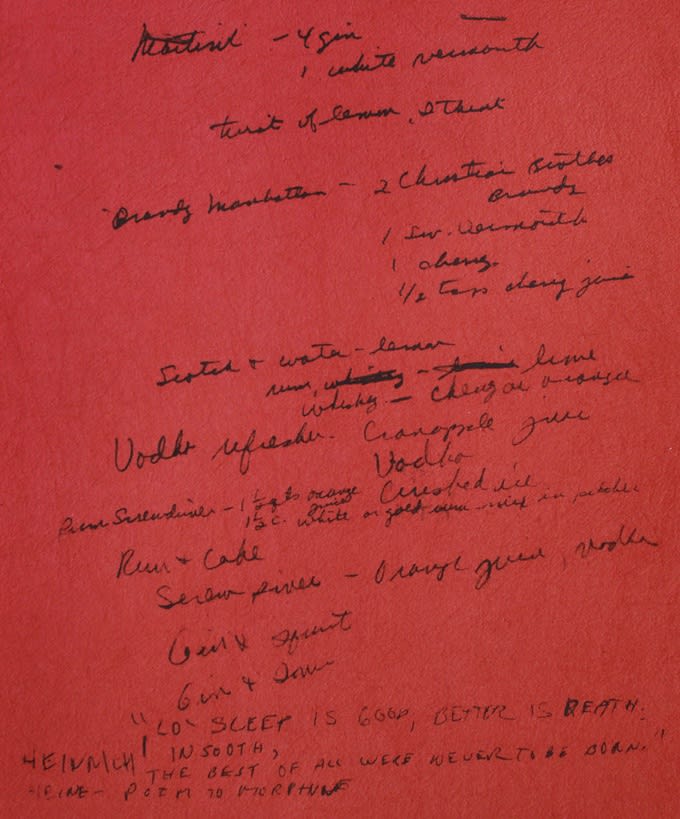 Martini - 4 gin
1 white vermouth
twist of lemon, I think
Brandy Manhattan - 2 Christian Brothes
Brandy
1 Sw. Vermouth
1 cherry
1/2 tsp cherry juice
Scotch & water - lemon
rum, whiskey - lime
Whiskey - cherry or orange
Vodka refresher - Cranapple juice
Vodka
Crushed ice
Rum Screwdriver - 1 1/2 qts orange juice
1 1/2 c. white or gold rum - mix in pitcher
Rum & Coke
Screw driver - Orange juice, vodka
Gin & Squirt
Gin &
"LO SLEEP IS GOOD, BETTER IS DEATH;
IN SOOTH,
THE BEST OF ALL WERE NEVER TO BE BORN."
HEINRICH
HEINE - POEM TO MORPHINE